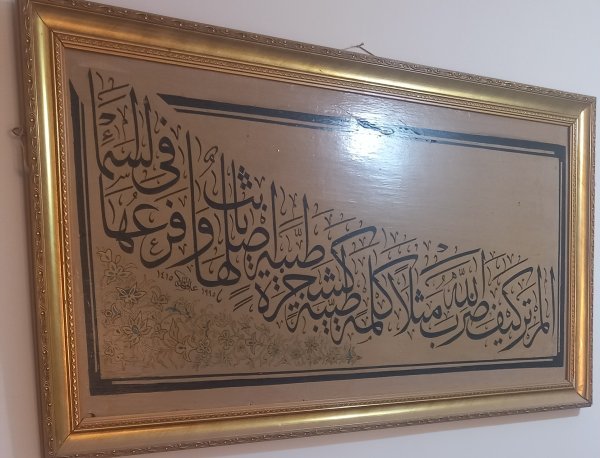 ألم تر كيف ضرب الله مثلاً كلمة طيبة كشجرة طيبة أصلها ثابت وفرعها في السماء
١٤١٥
١٩٩٥